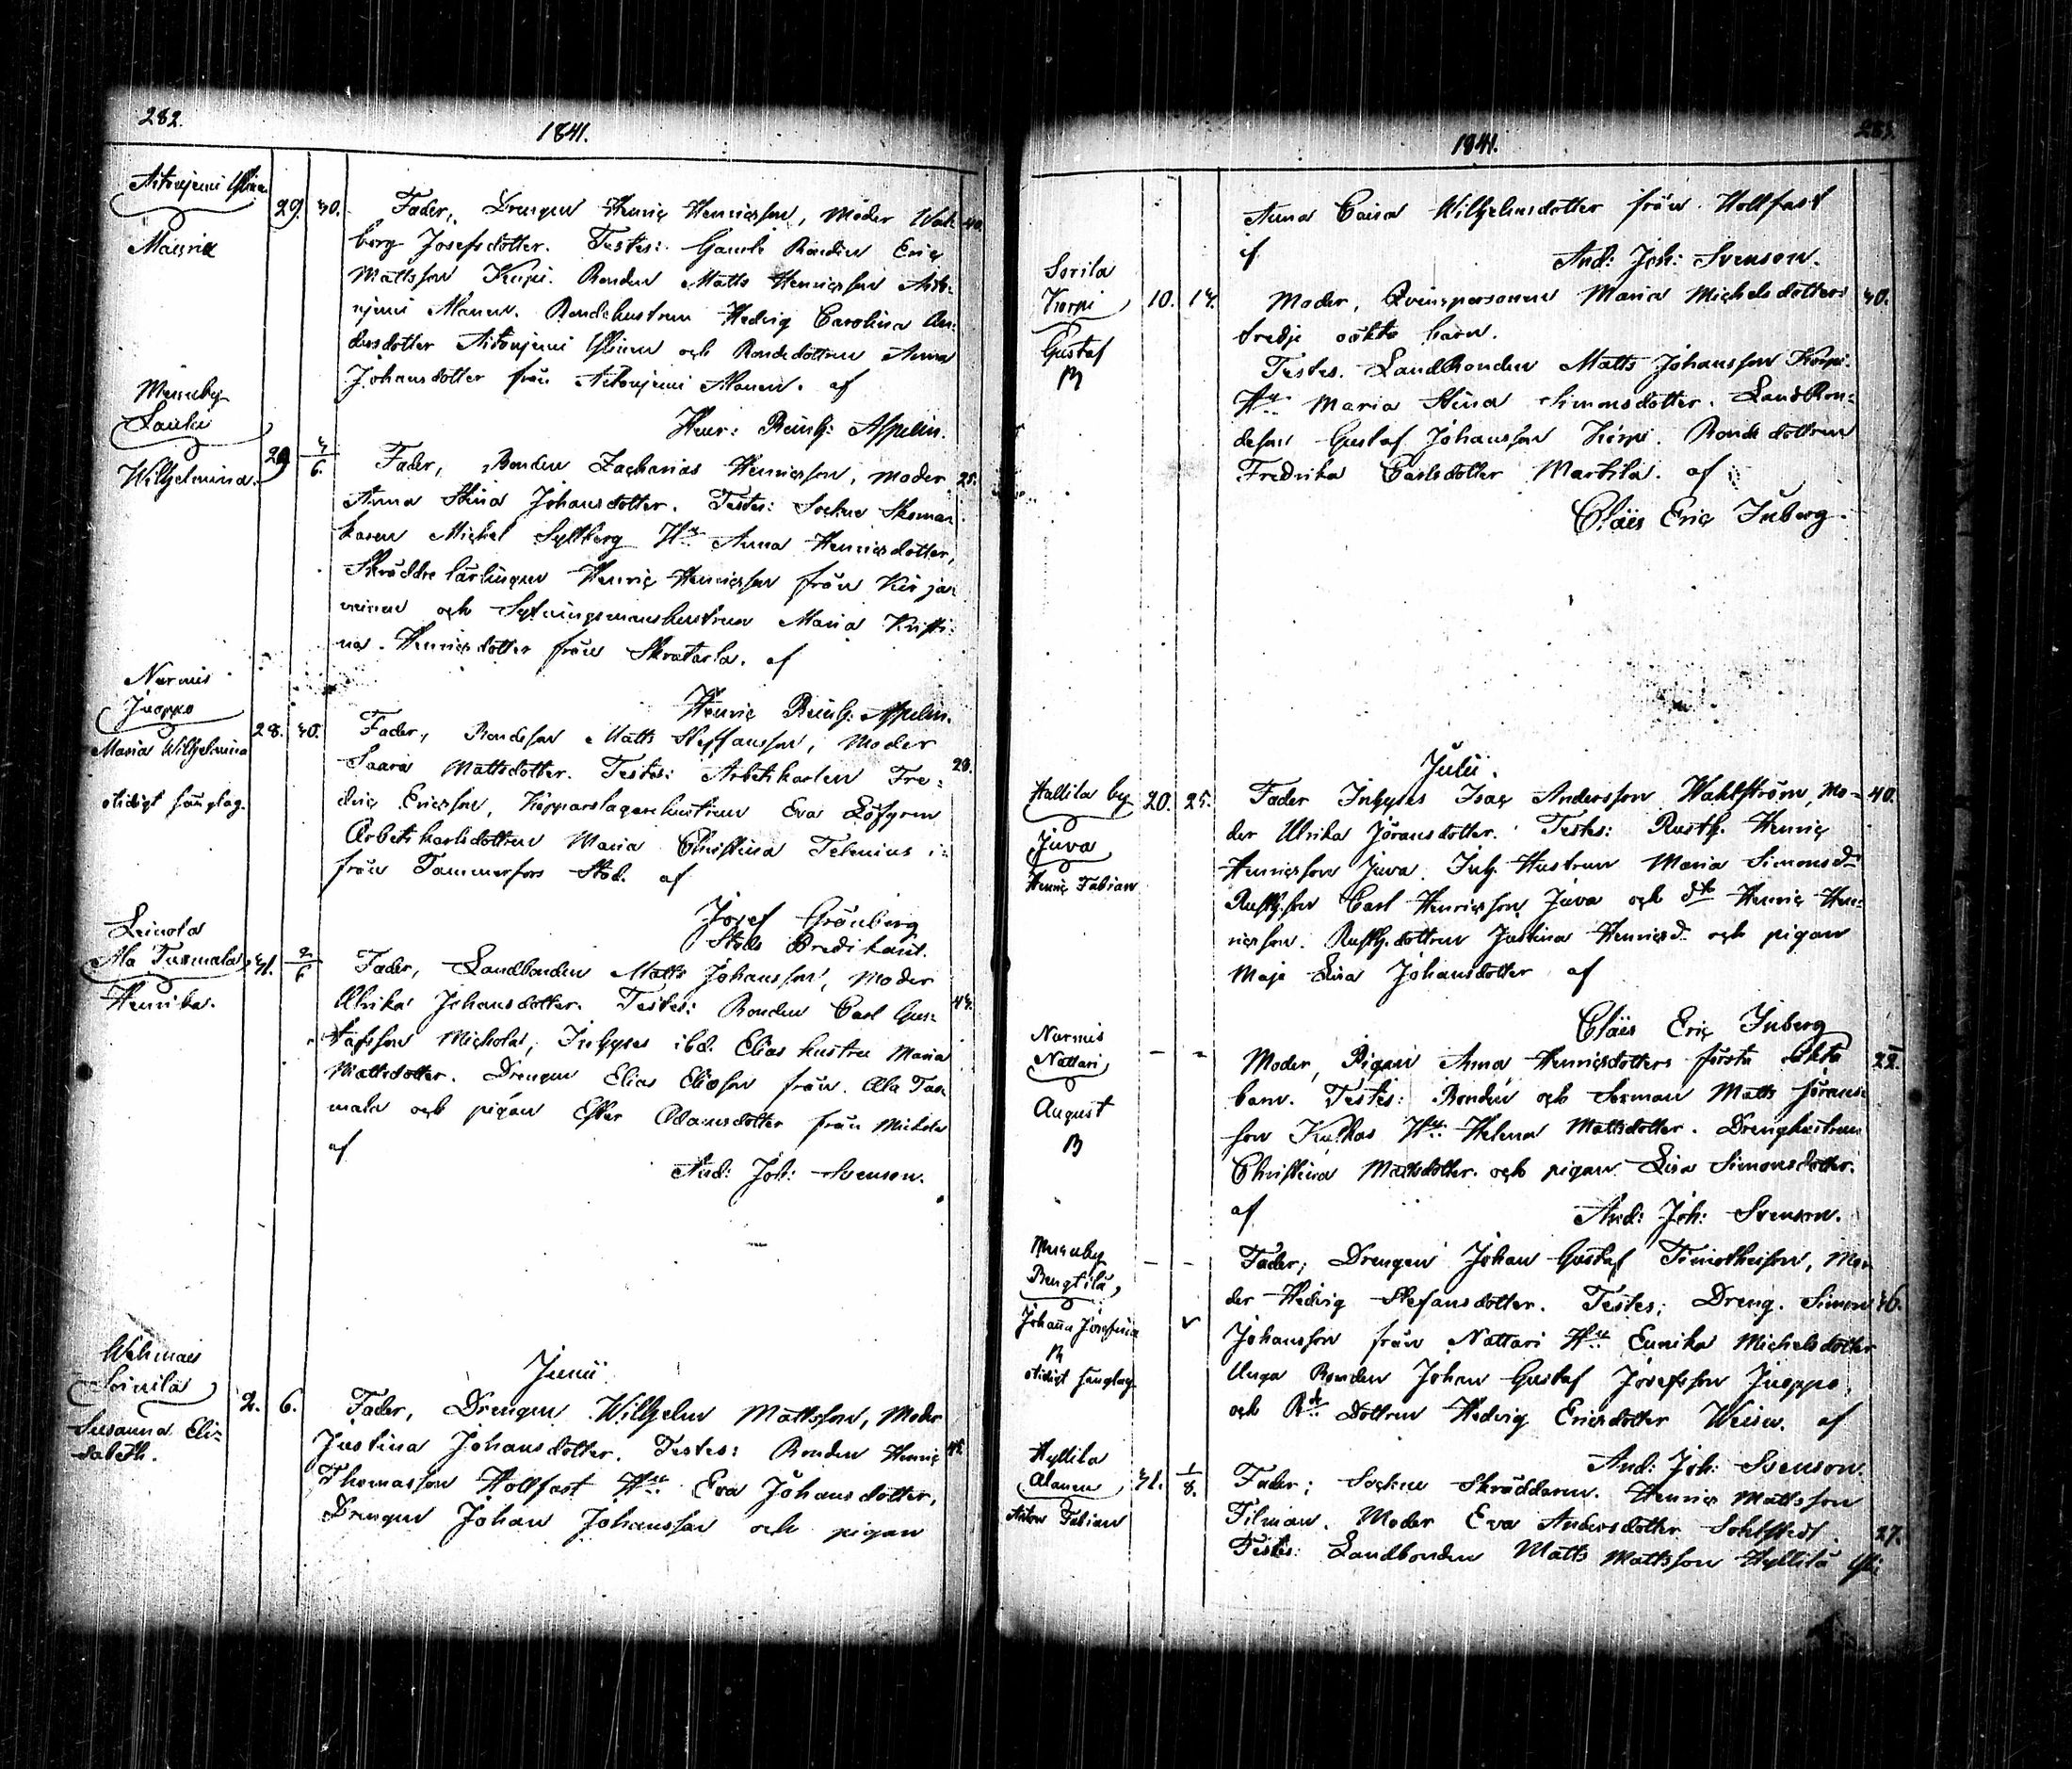 282.
1841.
Aitoniemi Ylinen
Mauria
29. 30. Fader, Drengen Henric Henricsson, Moder Wal- 40.
borg Josefsdotter. Testes: Gamle Bonden Eric
Mattsson Knpi. Bonden Matts Henricsson Aito-
niemi Alanen. Bondehustrun Hedvig Carolina An-
dersdotter Aitoniemi Ylinen och Bondedottren Anna
Johansdotter från Aitoniemi Alanen. af
Henr: Reinh: Aspelin.
Lauki
Wilhelmina.
29 3/6 Fader, Bonden Zacharias Henricsson, Moder 25.
Anna Stina Johansdotter. Testes: Sockne Skoma-
karen Michel Syltberg H:u Anna Henricsdotter,
Skräddrelärlingen Henric Henricsson från
och Sytningsmanshustrun Maria Kristi-
na Henricsdotter från Skratarla. af
Henric Reinh: Aspelin.
Nurmis
Juoppo
Maria Wilhelmina
otidigt sänglag.
28. 30. Fader, Bondeson Matts Steffansson, Moder
Saara Mattsdotter. Testes: Arbetskarlen Fre- 23.
dric Ericsson, Kopparslagarehustrun Eva Löfgren
Arbetskarlsdottren Maria Christina Telenius
från Tammerfors Stad. af
Josef Grönberg
Stads Predikant.
Leinola
Ala Tusmala
Henrika.
31. 2/6 Fader, Landbonden Matts Johansson, Moder
Ulrika Johansdotter. Testes: Bonden Carl Gus- 43.
tafsson Michola, Inhyses ibd. Elias hustru Maria
Mattsdotter. Drengen Elias Eliasson från Ala Tus-
mala och pigan Ester Adamsdotter från Michola
af
And: Joh: Svenson.
Junii
Wehmais
Soinila
Susanna Eli-
sabeth.
2. 6. Fader, Drengen Wilhelm Mattsson, Moder
Justina Johansdotter. Testes: Bonden Henric
Thomasson Hollfast H:u Eva Johansdotter,
Drengen Johan Johansson och pigan
1841.
Anna Caisa Wilhelmsdotter från Hollfast
af
And: Joh: Svenson.
Sorila
Korpi
Gustaf
10. 14. Moder, Qvinspersonen Maria Michelsdotters 40.
tredje oäkta barn.
Testes. Landbonden Matts Johansson Korpi.
H:u Maria Stina Simonsdotter. Landbon-
deson Gustaf Johansson Korpi. Bondedottren
Fredrika Carlsdotter Markila. af
Claës Eric Inberg.
Julii.
Hallila by
Juva
Henric Fabian
20. 25. Fader Inhyses Isac Andersson Wahlström, Mo- 40.
der Ulrika Jöransdotter. Testes: Rusth. Henric
Henricsson Juva. Inh. Hustrun Maria Simonsd:
Rusth.son Carl Henricsson Juva och d:o Henric Hen-
ricsson. Rusth.dottren Justina Henricsd: och pigan
Maja Lisa Johansdotter af
Claës Eric Inberg
Nurmis
Nattari
August
- - Moder, Pigan Anna Henricsdotters första oäkta 22.
barn. Testes: Bonden och Sexman Matts Jörans-
son Kulkas H:u Helena Mattsdotter. Drenghustrun
Christina Mattsdotter och pigan Lisa Simonsdotter.
af
And: Joh: Svenson.
Bengtilä,
Johanna Josefina
otidigt sänglag
- - Fader, Drengen Johan Gustaf Timotheisson, Mo-
der Hedvig Stefansdotter. Testes: Dreng. Simon 36.
Johansson från Nattari H:u Eunika Michelsdotter
Unga Bonden Johan Gustaf Josefsson Juoppo
och B:de Dottren Hedvig Ericsdotter Weisu. af
And: Joh: Svenson.
Hyllilä
Alanen
Anton Fabian
31. 1/8. Fader; Sockne Skräddaren Henric Mattsson
Filman. Moder Eva Andersdotter Sohlstedt. 27.
Testes: Landbonden Matts Mattsson Hyllilä Yli